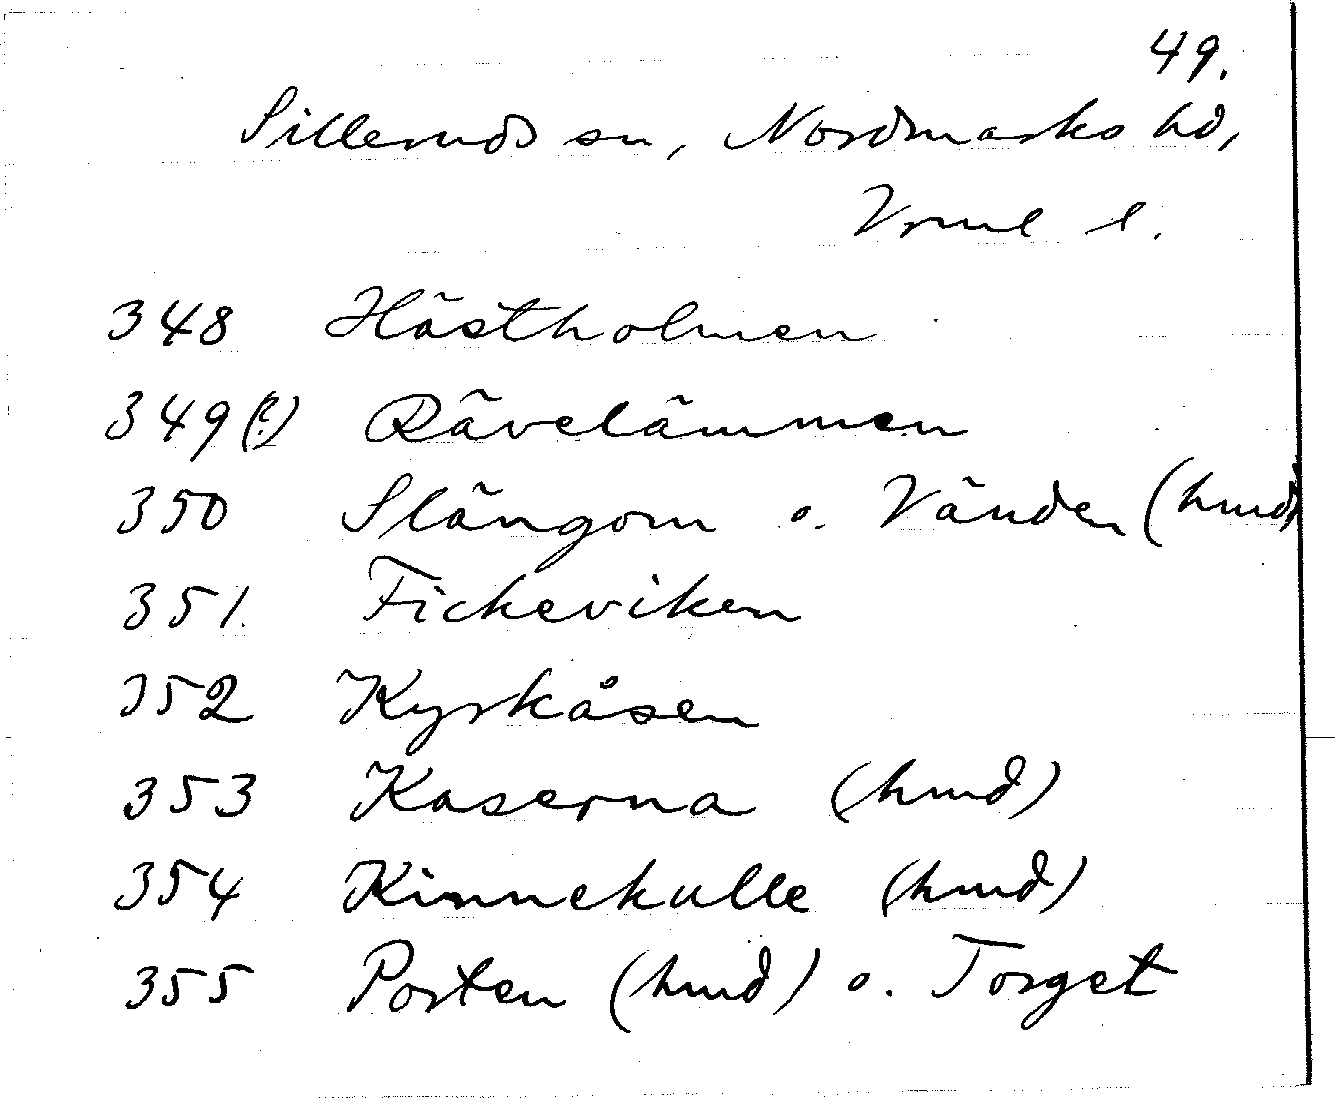 49.
Silleruds sn, Nordmarks hd,
Vrml l.
348 Hästholmen
349(?) Rävelämmen
350 Slängom o. Vänder (hmd)
351. Fickeviken
352 Kyrkåsen
353 Kaserna (hmd)
354 Kinnekulle (hmd)
355 Porten (hmd) o. Torget